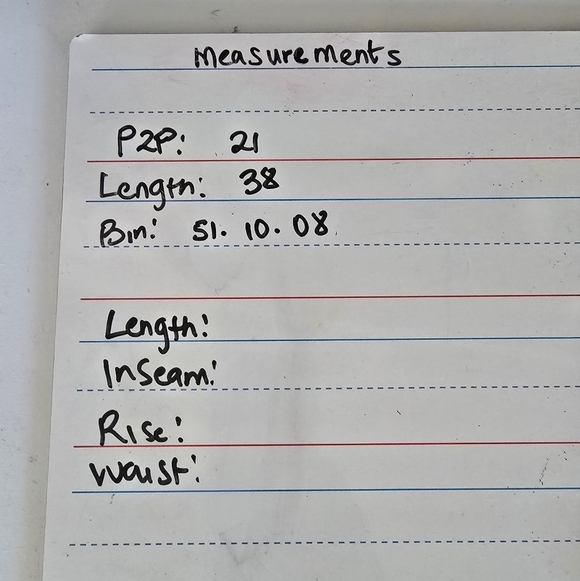 Measurements
P2P: 21
Length: 38
Bin: 51. 10. 08
Length:
Inseam:
Rise:
Waist: